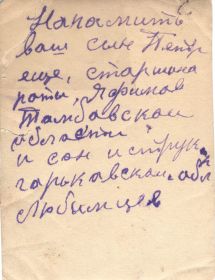 На память
ваш сын Петр
еще, старшина
роты, Яфинов
Тамбовской
области
и сон
горьковской обл
Любимцев